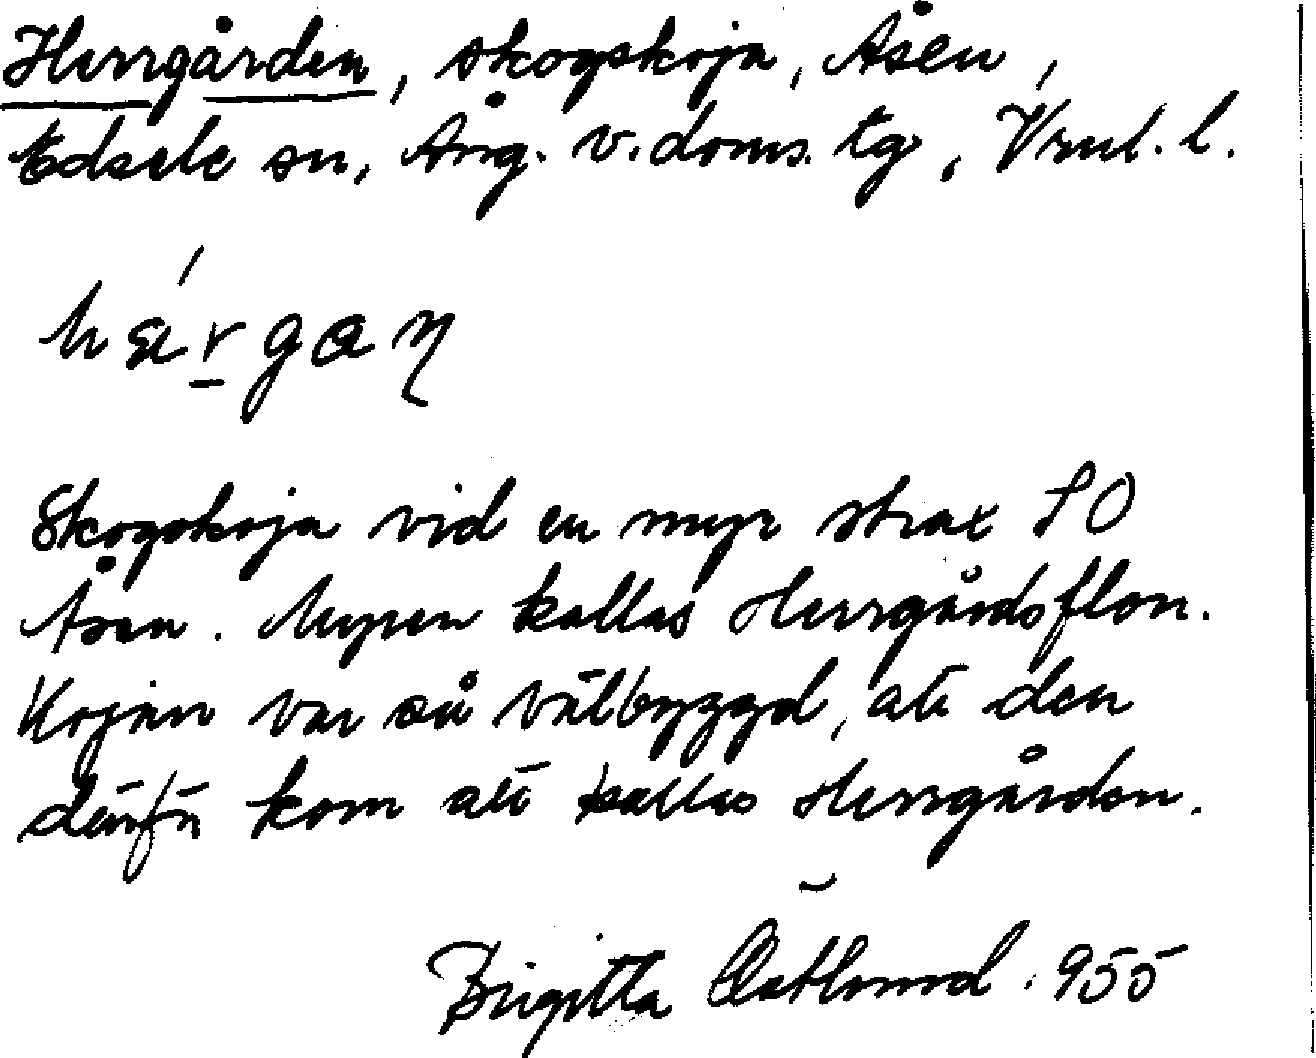 Herrgården, skogskoja, Åsen,
Edsele sn, Ång. v. doms. tg, Vrnl. l.
Skogskoja vid en myr strax SO
Åsen. Myren kallas Herrgårdsflon.
Kojan var så välbyggd, att den
därför kom att kallas Herrgården.
Birgitta Östlund. 955